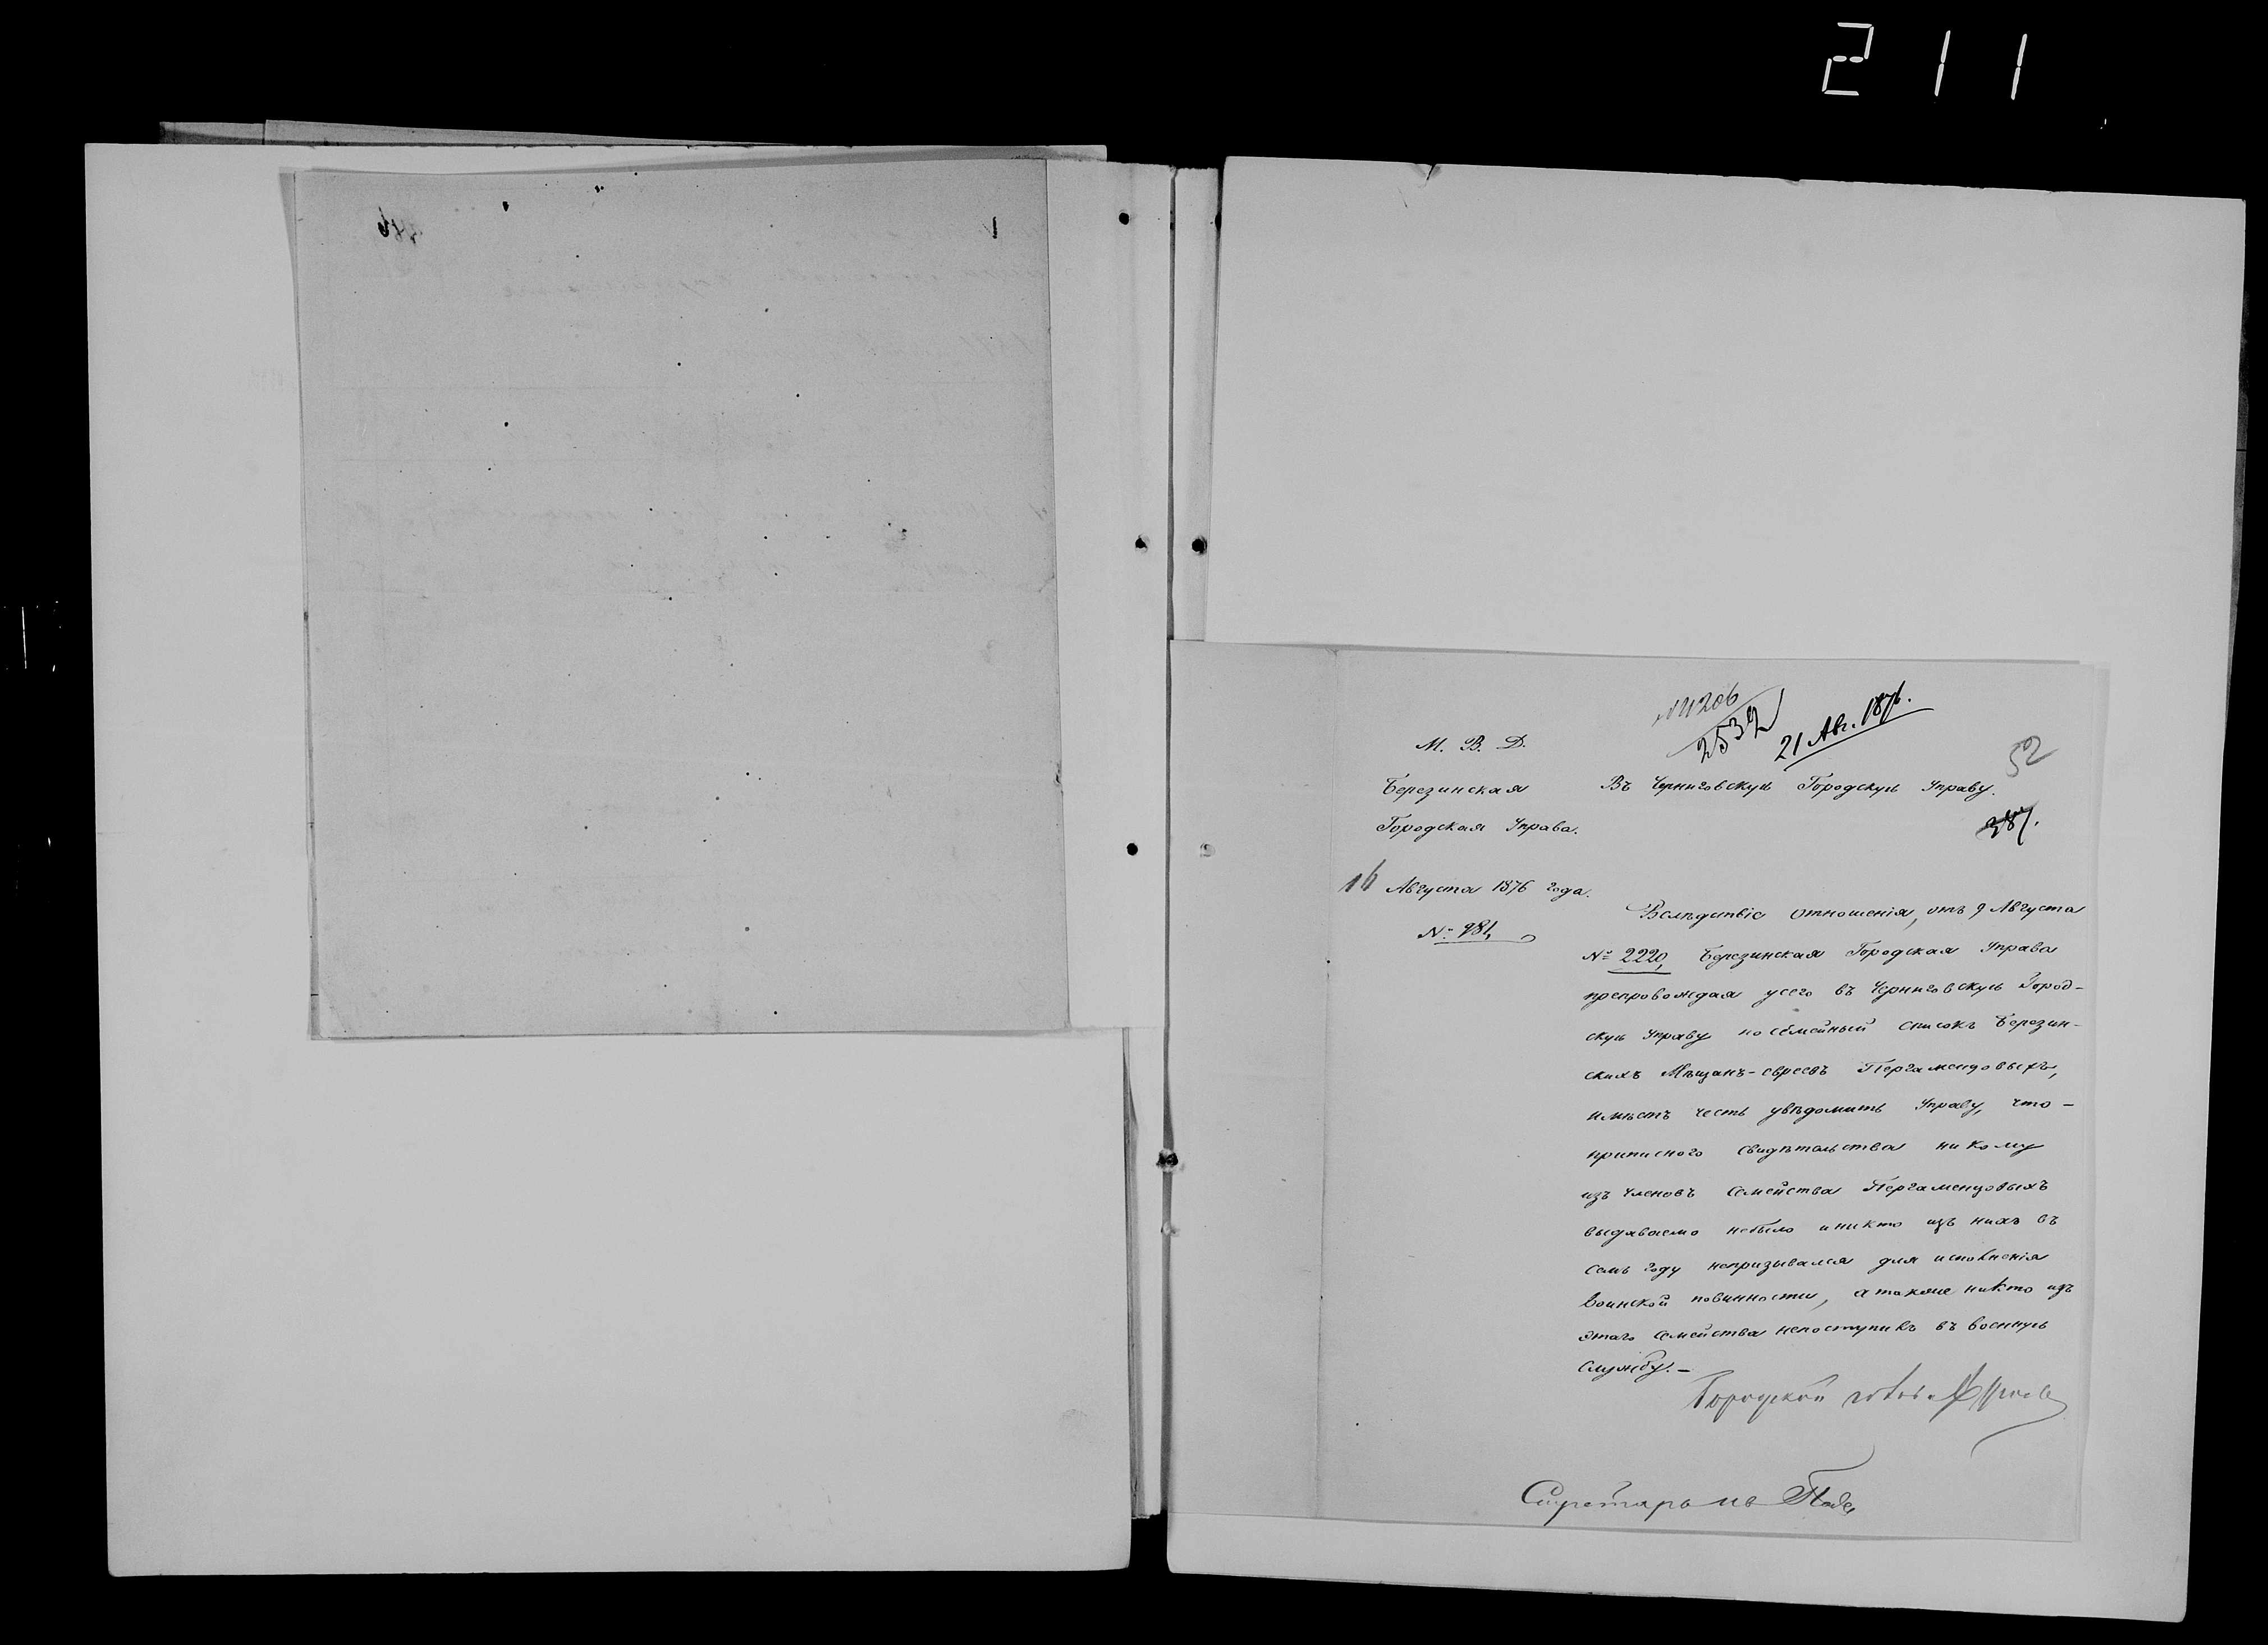 211
2532
21 Авг. 1876.
52
М. В. Д.
Березинская
Городская Управа.
Въ Черниговскую Городскую Управу.
387.
16 Августа 1876 года.
№ 981,
Вслѣдствіе отношенія, отъ 9 Августа
№ 2220, Березинская Городская Управа
препровождая усего въ Черниговскую Город-
скую Управу посемейный списокъ Березин-
скихъ Мѣщанъ-евреевъ Пергамендовыхъ,
имѣетъ честь увѣдомить Управу, что-
приписного свидѣтельства никому
изъ членовъ семейства Пергамендовыхъ
выдаваемо небыло иникто изъ нихъ въ
семъ году непризывался для исполненія
воинской повинности, атакже никто изъ
этаго семейства непоступилъ въ военную
службу.-
Городской голова
Секретарь